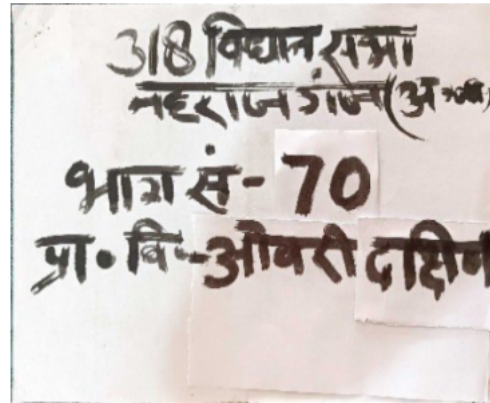 318 विधान सभा
महराजगंज (अ०जा०)
भाग सं- 70
प्रा० वि०-ओबरी दक्षिण